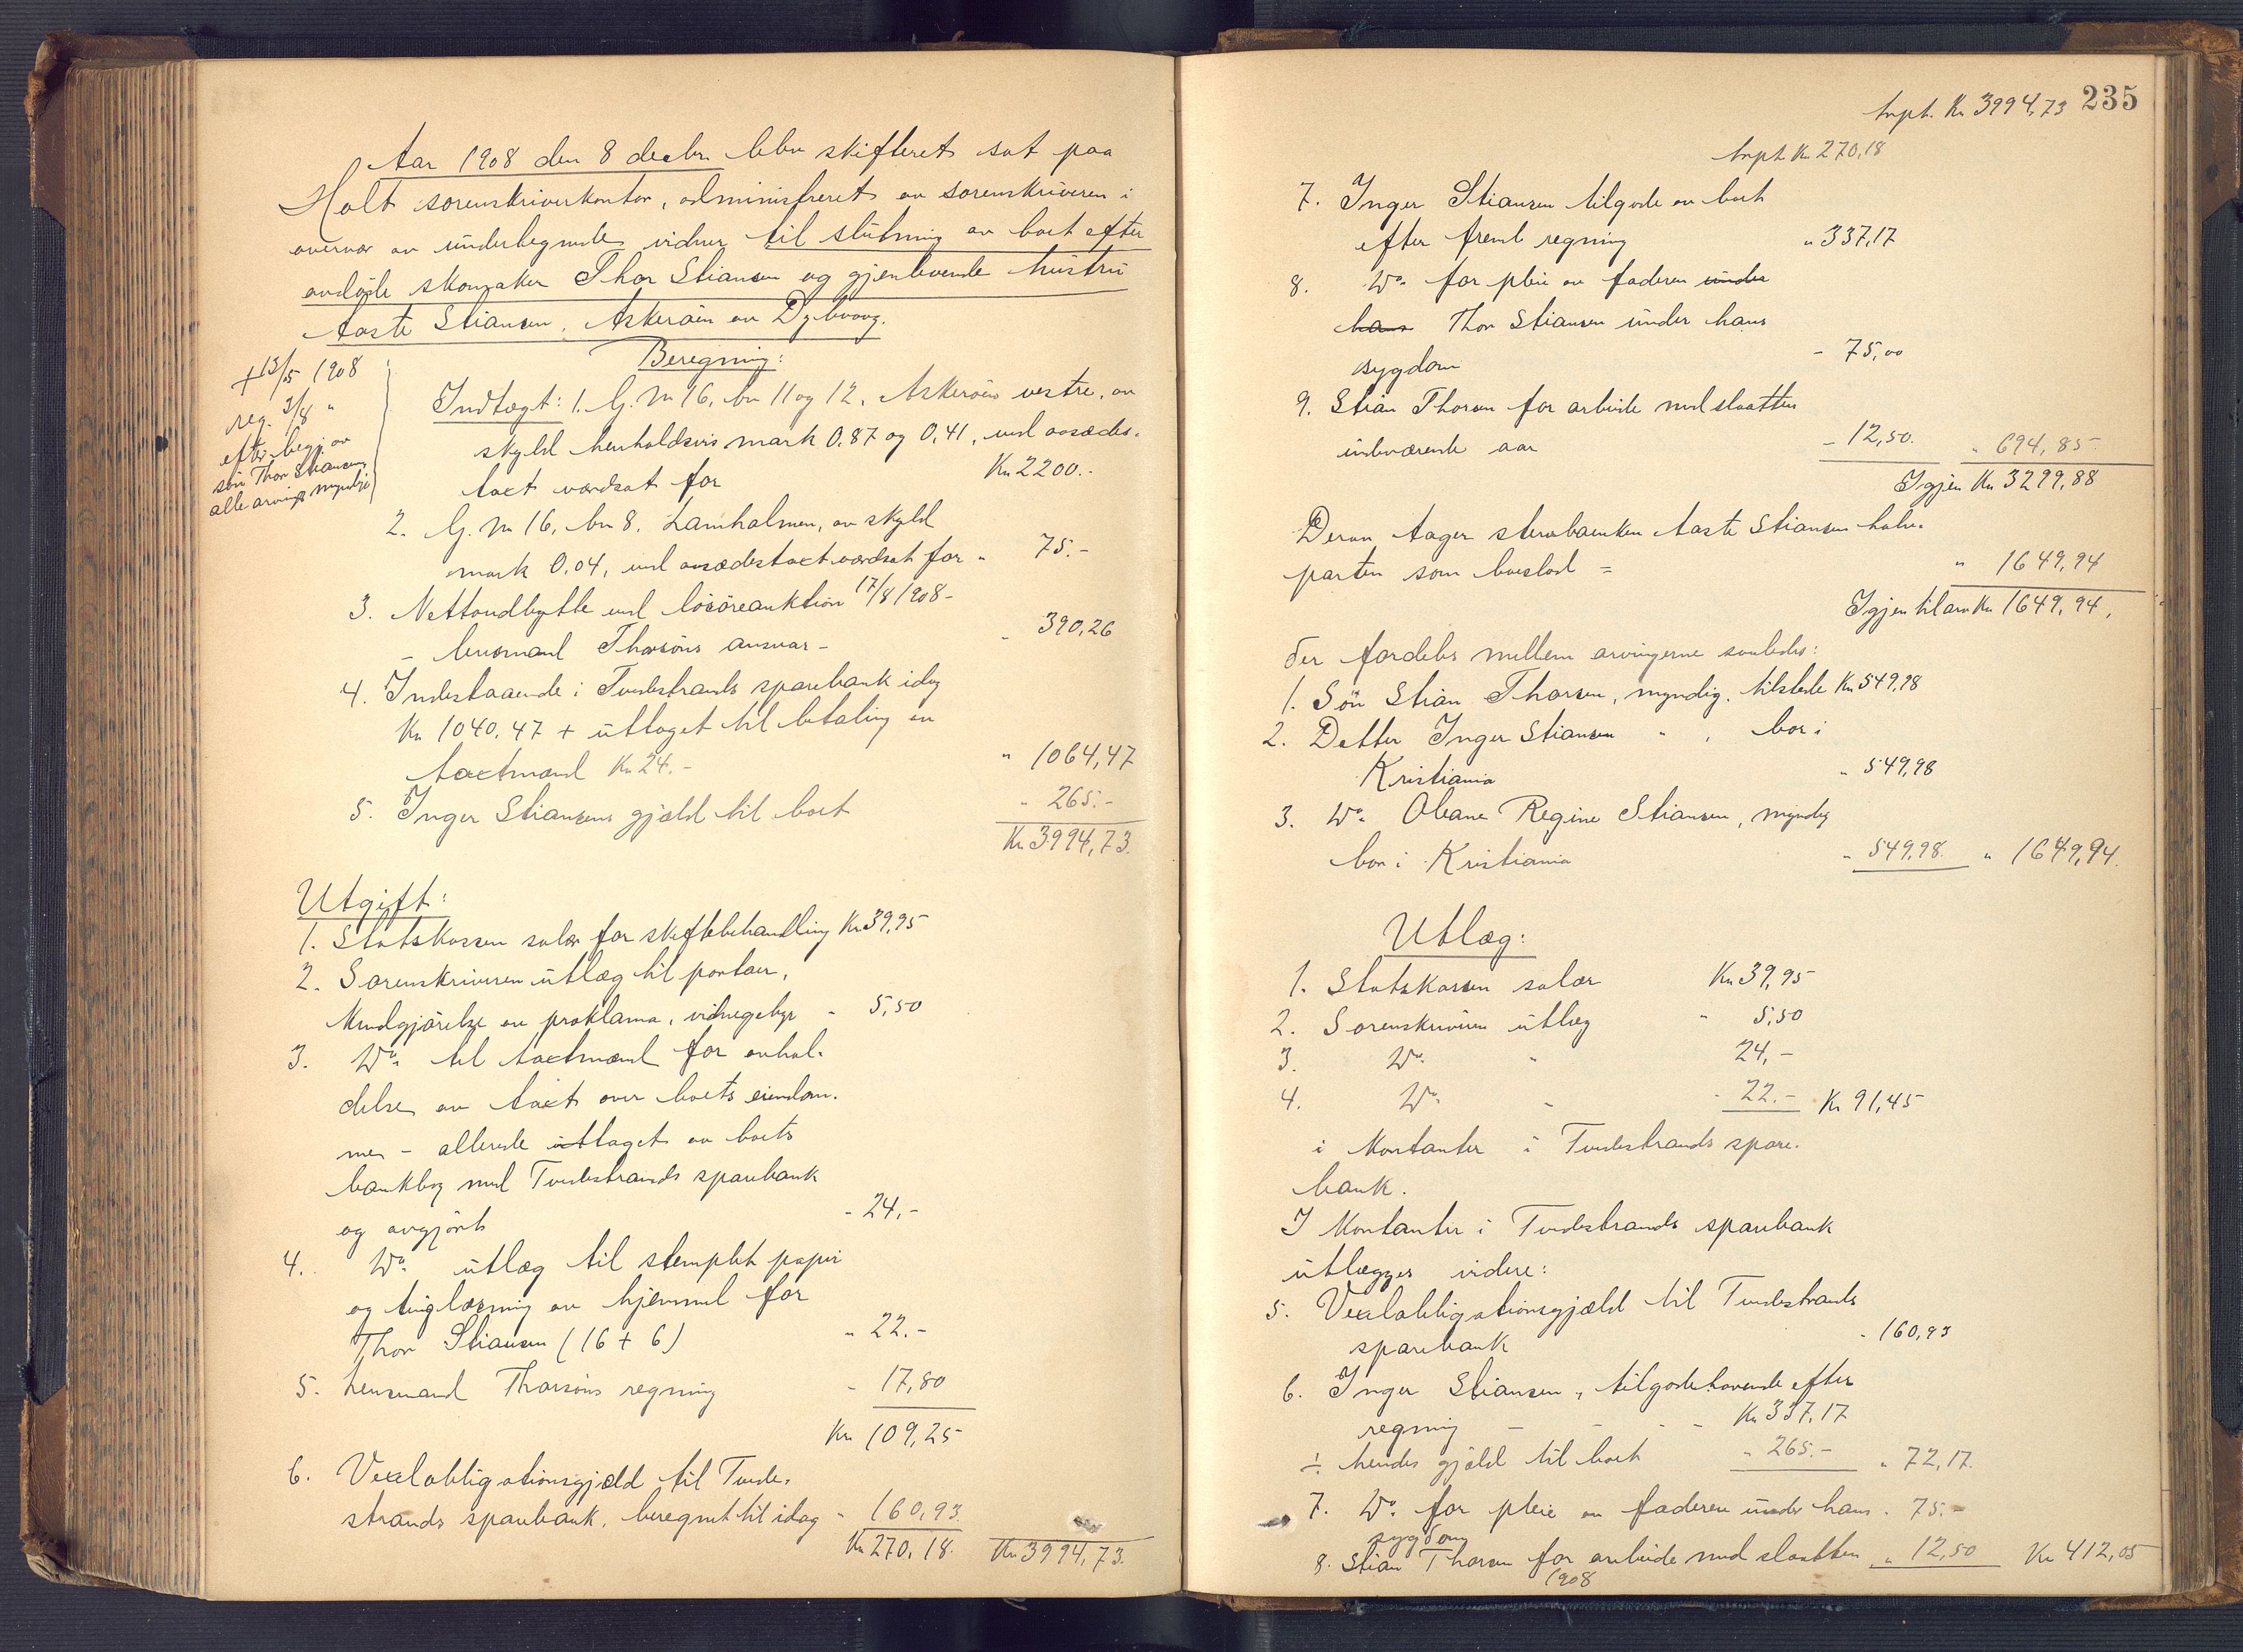 Aar 1908 den 8 decbr blev skifteret sat paa
Holt sorenskriverkontor, administreret av sorenskriveren i
overvær av undertegnede vidner til slutning av boet efter
avdøde skomaker Thor Stiansen og gjenlevende hustru
Aaste Stiansen, Askerøen av Dybvaag.
+ 13/5 1908
reg. 3/8 "
efter begj. av
søn Thor Stiansen
alle arvinger myndige
Beregning:
Indtægt: 1. G. No 16, bn 11 og 12, Askerøen vestre, av
skyld henholdsvis mark 0,87 og 0,41, ved avsædes-
taxt værdsat for Kr 2200.-
2. G. No 16, bn 8. Lamholmen, av skyld
mark 0,04, ved avsædestaxt værdsat for " 75.-
3. Nettoudbytte ved løsøreauktion 17/8 1908 -
- lensmand Thorsøns ansvar - - 390,26
4. Indestaaende i Tvedestrands sparebank idag
Kr 1040.47 + uttaget til betaling av
taxtmænd Kr 24.- " 1064,47
5. Inger Stiansens gjæld til boet " 265.-
Kr 3994,73.
Utgift:
1. Statskassen salær for skiftebehandling Kr 39,95
2. Sorenskriveren utlæg til portoer,
kundgjørelse av proklama, vidnegebyr - 5,50
3. Do. til taxtmænd for avhol-
delse av taxt over boets eiendom-
me - allerede uttaget av boets
bankbog med Tvedestrands sparebank
og avgjort - 24.-
4. Do. utlæg til stemplet papir
og tinglæsning av hjemmel for
Thor Stiansen (16 + 6) " 22.-
5. Lensmand Thorsøns regning - 17,80
Kr 109,25
6. Vexelobligationsgjæld til Tvede-
strands sparebank, beregnet til idag - 160,93
Kr 270,18. Kr 3994,73.
235
Trspt. Kr 3994,73
Trspt Kr 270,18
7. Inger Stiansen tilgode av boet
efter freml regning " 337,17
8. Do. for pleie av faderen under
hans Thor Stiansen under hans
sygdom - 75,00
9. Stian Thorsen for arbeide med slaatten
indeværende aar - 12,50. " 694,85
Igjen Kr 3299,88
Derav tager stervboenken Aaste Stiansen halv-
parten som boeslod = " 1649,94
Igjen til arv Kr 1649,94,
der fordeles mellem arvingerne saaledes:
1. Søn Stian Thorsen, myndig, tilstede Kr 549,98
2. Datter Inger Stiansen " , bor i
Kristiania " 549,98
3. Do. Oleane Regine Stiansen, myndig
bor i Kristiania " 549,98. " 1649,94.
Utlæg:
1. Statskassen salær Kr 39,95
2. Sorenskriveren utlæg " 5,50
3. Do. " 24,-
4. Do. " - 22.- Kr 91,45
i Kontanter i Tvedestrands spare-
bank.
I Kontanter i Tvedestrands sparebank
utlægges videre:
5. Vexelobligationsgjæld til Tvedestrands
sparebank - 160,93
6. Inger Stiansen, tilgodehavende efter
regning - - - - Kr 337,17
÷ hendes gjæld til boet " 265.- " 72,17.
7. Do. for pleie av faderen under hans - 75.-
sygdom
8. Stian Thorsen for arbeide med slaatten " 12,50 Kr 412,05
1908